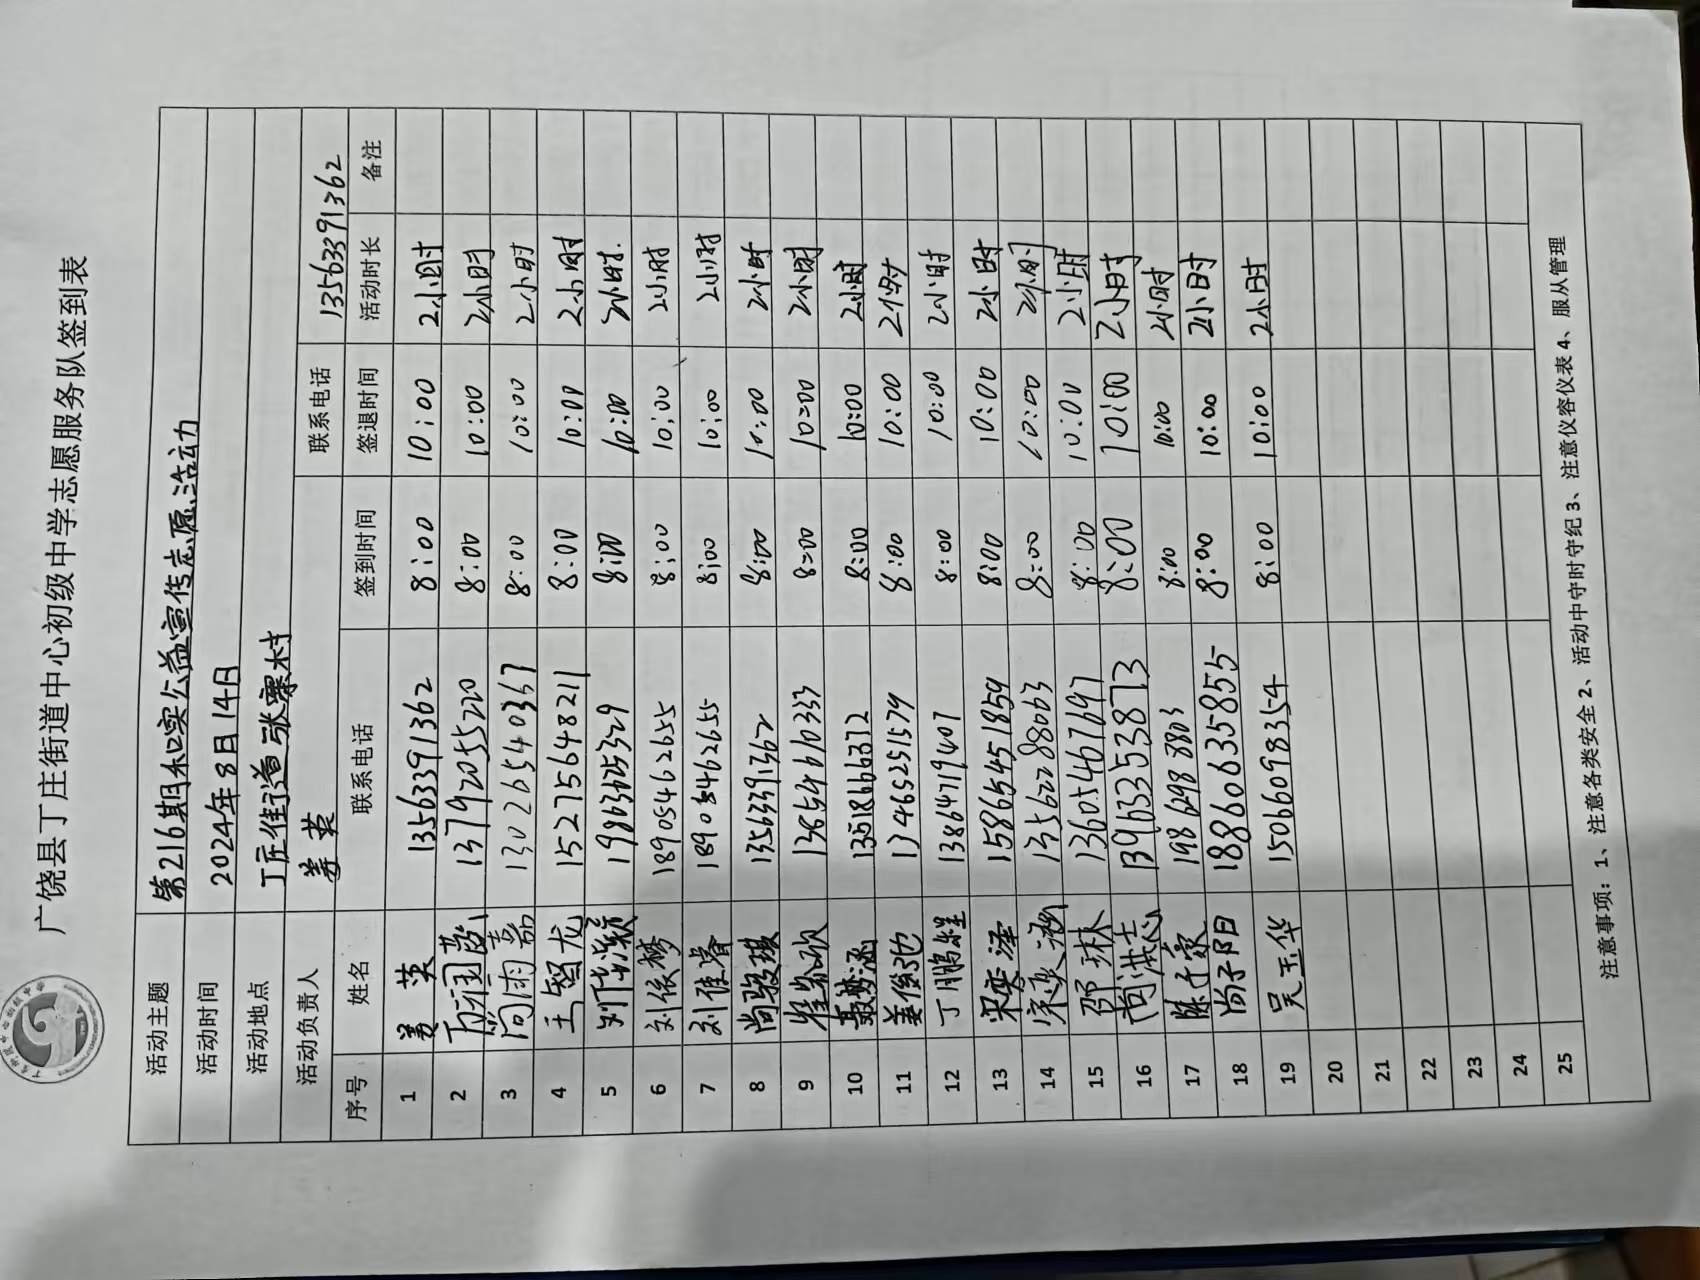 广饶县丁庄街道中心初级中学志愿服务队签到表
活动主题 第216期和实公益宣传志愿活动力
活动时间 2024年8月14日
活动地点 丁庄街道张寨村
活动负责人 姜英 联系电话 13563391362
序号 姓名 联系电话 签到时间 签退时间 活动时长 备注
1 姜英 13563391362 8:00 10:00 2小时
2 13792055220 8:00 10:00 2小时
3 尚雨嘉 13026540367 8:00 10:00 2小时
4 王智龙 15275648211 8:00 10:00 2小时
5 刘华颖 19863625329 8:00 10:00 2小时
6 刘依梦 18905462655 8:00 10:00 2小时
7 刘佳睿 18905462655 8:00 10:00 2小时
8 尚骏琪 13563391362 8:00 10:00 2小时
9 崔馨欣 13654610333 8:00 10:00 2小时
10 聂梦涵 13518666372 8:00 10:00 2小时
11 姜俊弛 13465251579 8:00 10:00 2小时
12 丁鹏程 13864719407 8:00 10:00 2小时
13 宋奕泽 15865451859 8:00 10:00 2小时
14 宋奕涵 13562288063 8:00 10:00 2小时
15 邵琳 13605467697 8:00 10:00 2小时
16 尚洪志 13963353873 8:00 10:00 2小时
17 陈子豪 19862988803 8:00 10:00 2小时
18 尚子阳 18860635855 8:00 10:00 2小时
19 吴玉华 15066098354 8:00 10:00 2小时
20
21
22
23
24
25
注意事项：1、注意各类安全 2、活动中守时守纪 3、注意仪容仪表 4、服从管理